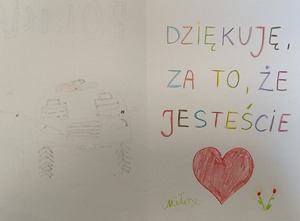 DZIĘKUJĘ,
ZA TO, ŻE
JESTEŚCIE
Miłosz